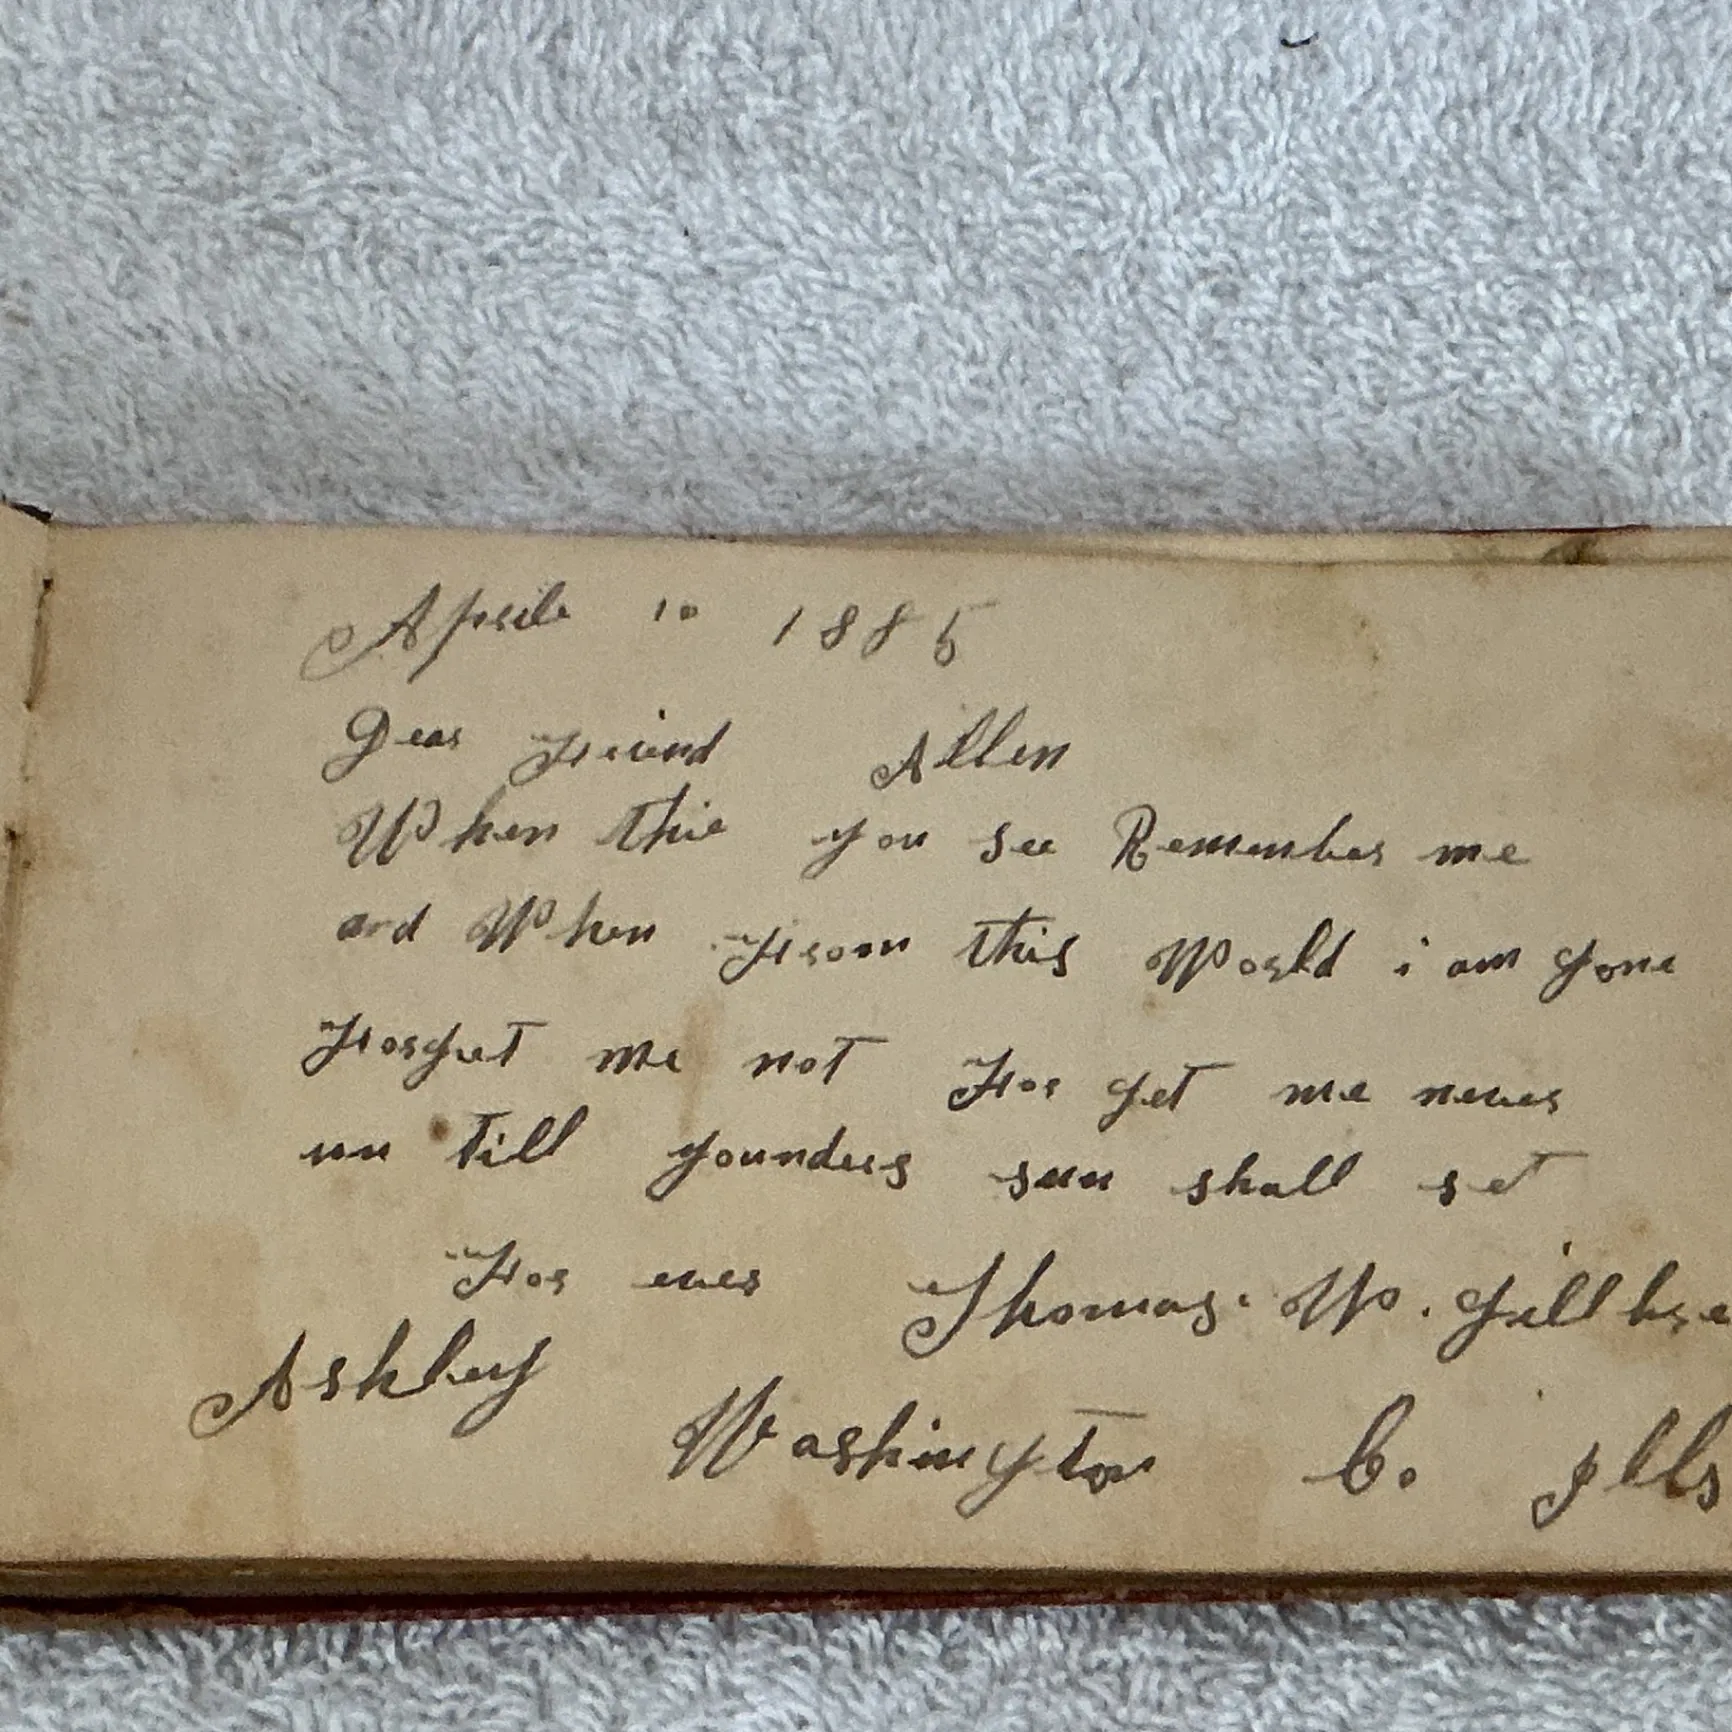 Aprile 10 1885
Dear Freind Allen
When this you see Remember me
and When From this World i am gone
Forget me not For get me never
un till younders sun shall set
For ever Thomas. W.
Ashley
Washington Co. Ills